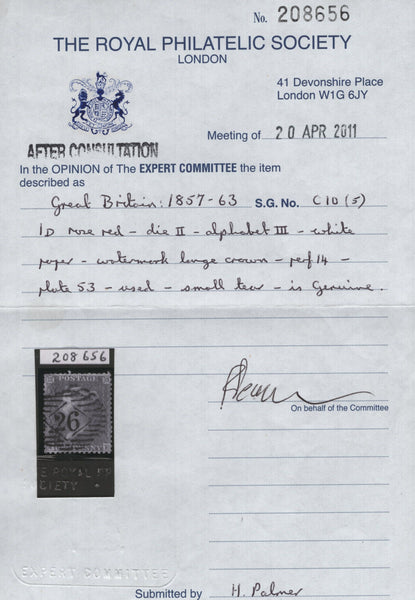 No. 208656
THE ROYAL PHILATELIC SOCIETY
LONDON
41 Devonshire Place
London W1G 6JY
Meeting of 20 APR 2011
AFTER CONSULTATION
In the OPINION of The EXPERT COMMITTEE the item
described as
Great Britain: 1857-63 S.G. No. C10 (5)
1D rose red - die II - alphabet III - white
paper - watermark large crown - perf 14 -
plate 53 - used - small tear - is Genuine.
208656
POSTAGE
26
E ROYAL PH
CIETY
On behalf of the Committee
EXPERT COMMITTEE
Submitted by H. Palmer